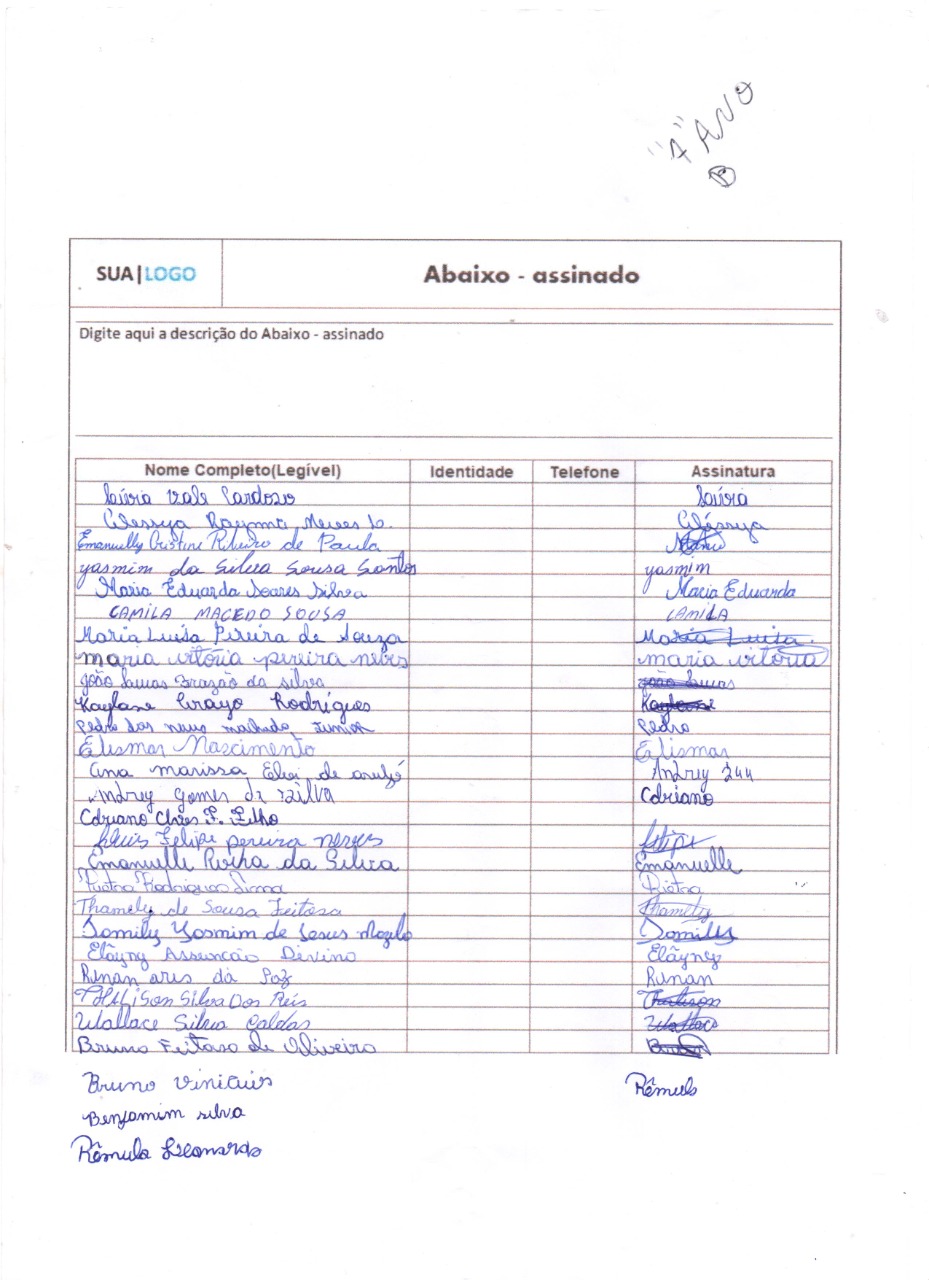 "1" ANO
B
SUA|LOGO Abaixo - assinado
Digite aqui a descrição do Abaixo - assinado
Nome Completo(Legível) Identidade Telefone Assinatura
Vale Cardoso
Neves
Emanuelly Cristine Ribeiro de Paula
yasmim da Silva Sousa Santos yasmim
Maria Eduarda Soares Silva Maria Eduarda
CAMILA MACEDO SOUSA CAMILA
Maria Luísa Pereira de Souza Maria Luísa
maria vitória pereira neves maria vitória
joão lucas Brazão da silva joão lucas
Kaylane Rodrigues Kaylane
Pedro das neves machado Junior Pedro
Elismar Nascimento Elismar
ana marissa de Andrey
Andrey gomes da silva Cdriano
Cdriano F. Filho
Luis Felipe pereira neves felipe
Emanuelle Rocha da Silva Emanuelle
Pietra Rodrigues Lima Pietra
Thamely de Sousa Feitosa Thamely
Domily Yasmim de Jesus Domily
Elâyny Assunção Divino Elâyny
Renan da Paz Renan
Thalison Silva Dos Reis Thalison
Wallace Silva Caldas Wallace
Bruno Feitosa de Oliveira
Bruno Rômulo
Benjamim silva
Rômulo Leonardo